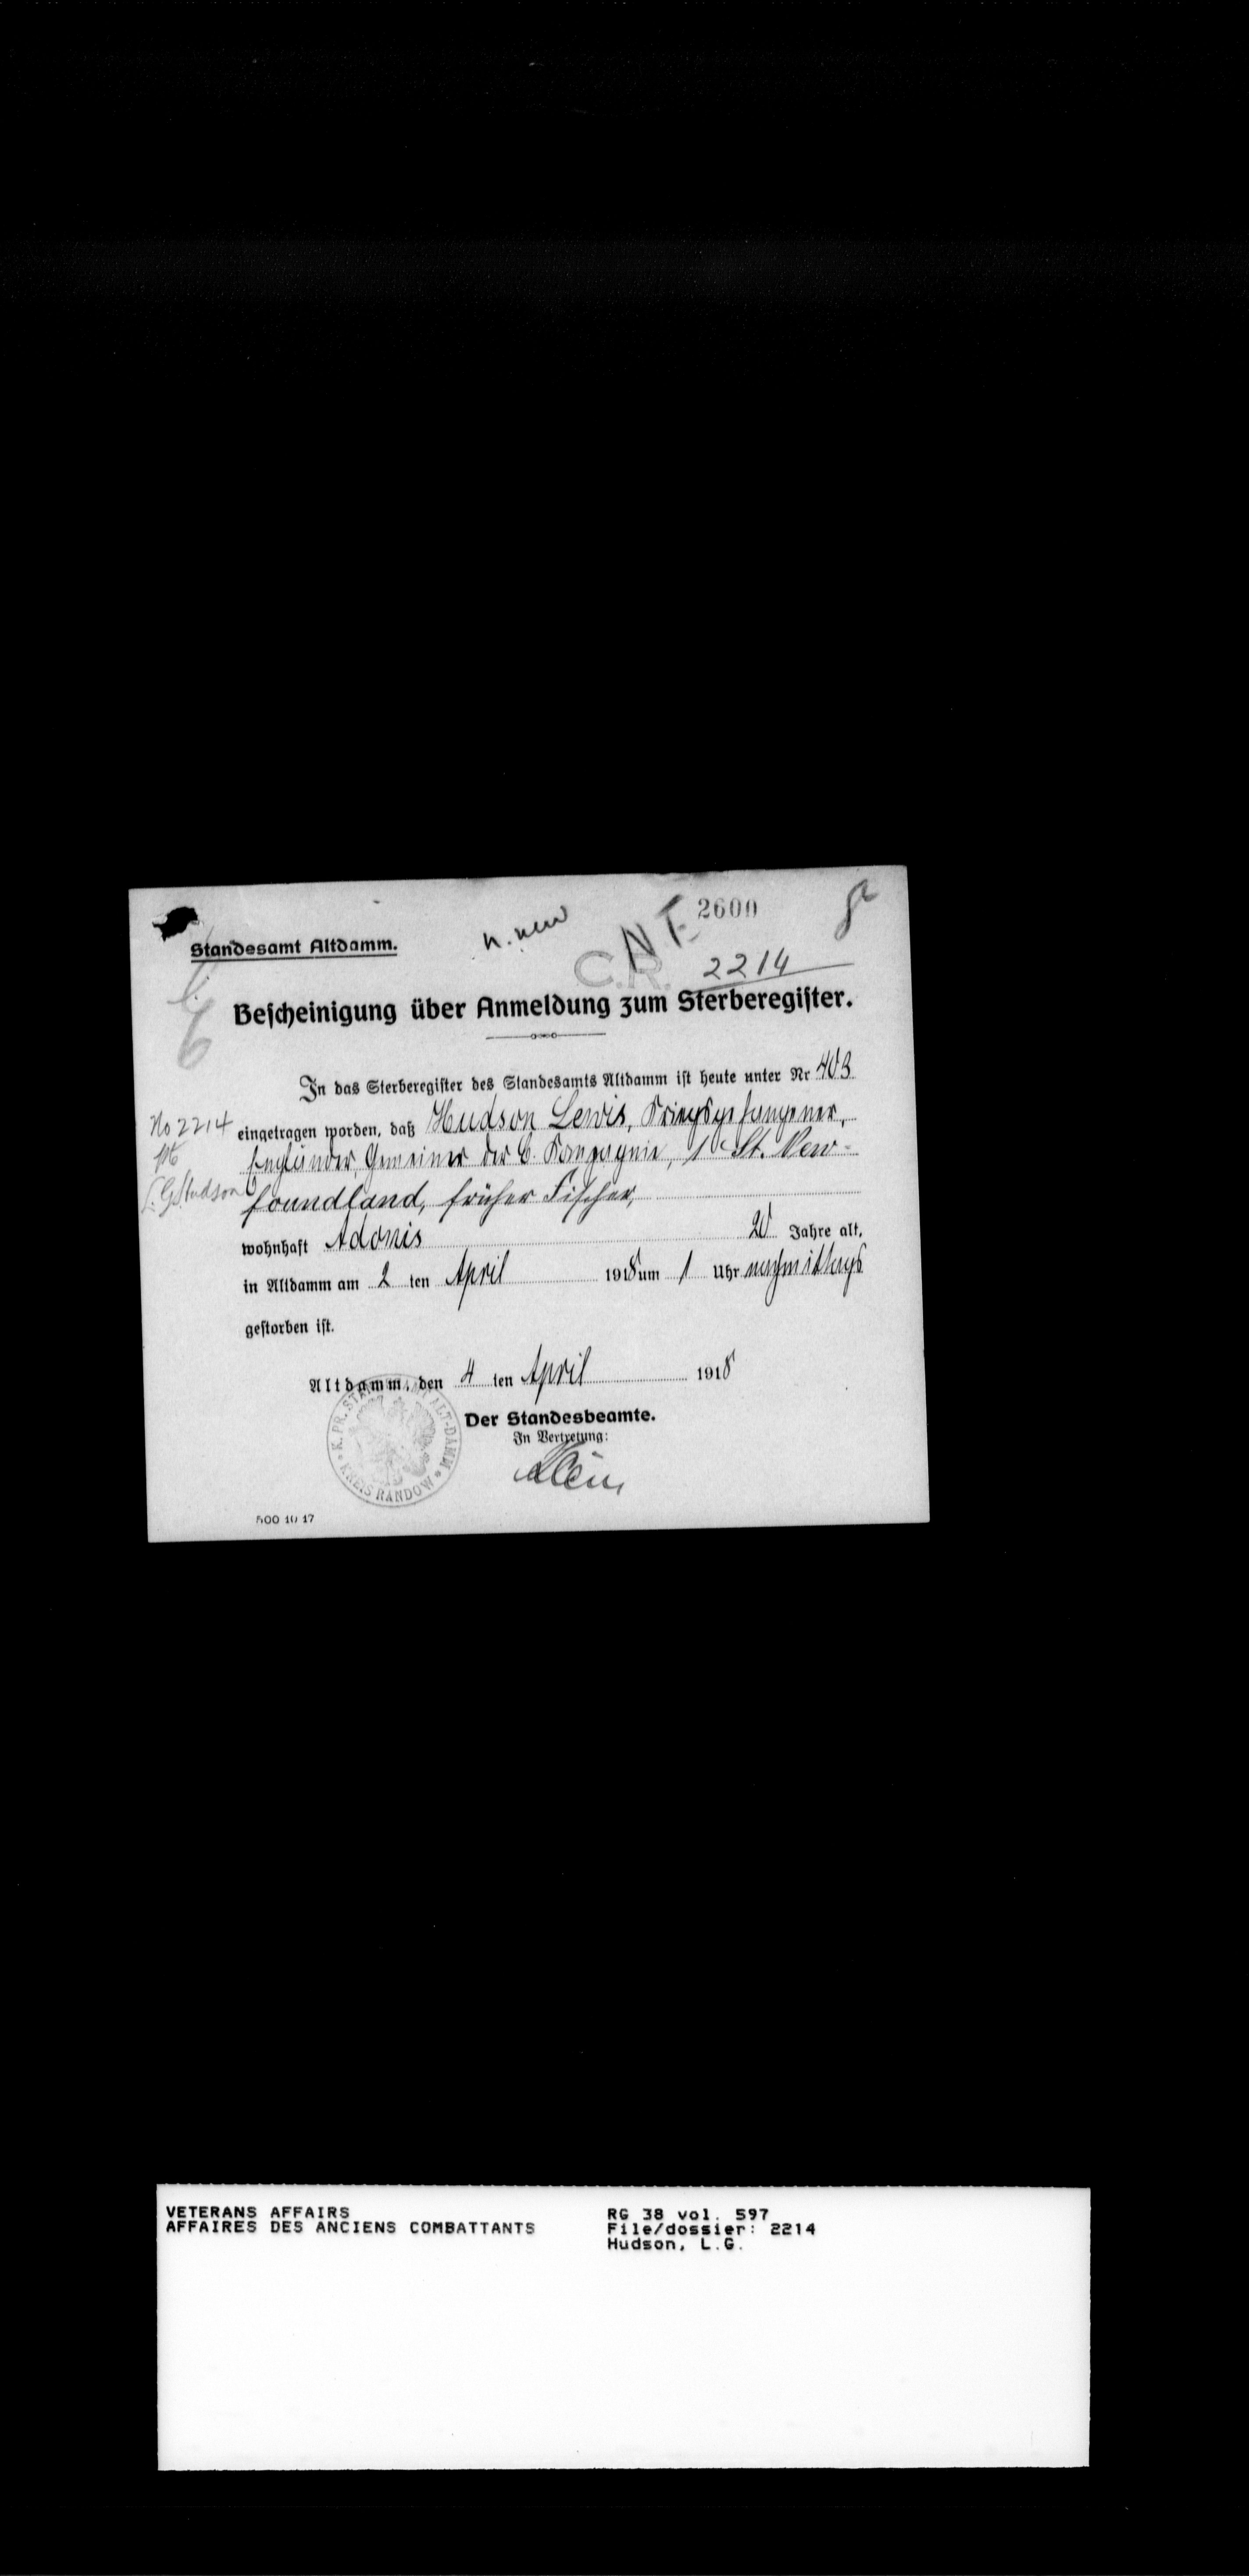 2600
N.F.
C.R.
2214
Standesamt Altdamm.
Bescheinigung über Anmeldung zum Sterberegister.
In das Sterberegister des Standesamts Altdamm ist heute unter Nr 403
No 2214
eingetragen worden, daß Hudson Lewis, Kriegsgefangener,
Engländer, Gemeiner der C. Kompagnie, 1 St. New-
L. G. Hudson
foundland, früher Fischer,
wohnhaft Adonis 20 Jahre alt,
in Altdamm am 2 ten April 1918 um 1 Uhr nachmittags
gestorben ist.
Altdamm, den 4 ten April 1918
Der Standesbeamte.
In Vertretung:
K. PR. STANDESAMT ALT-DAMM * KREIS RANDOW *
500 10 17
VETERANS AFFAIRS
AFFAIRES DES ANCIENS COMBATTANTS
RG 38 vol. 597
File/dossier: 2214
Hudson, L.G.